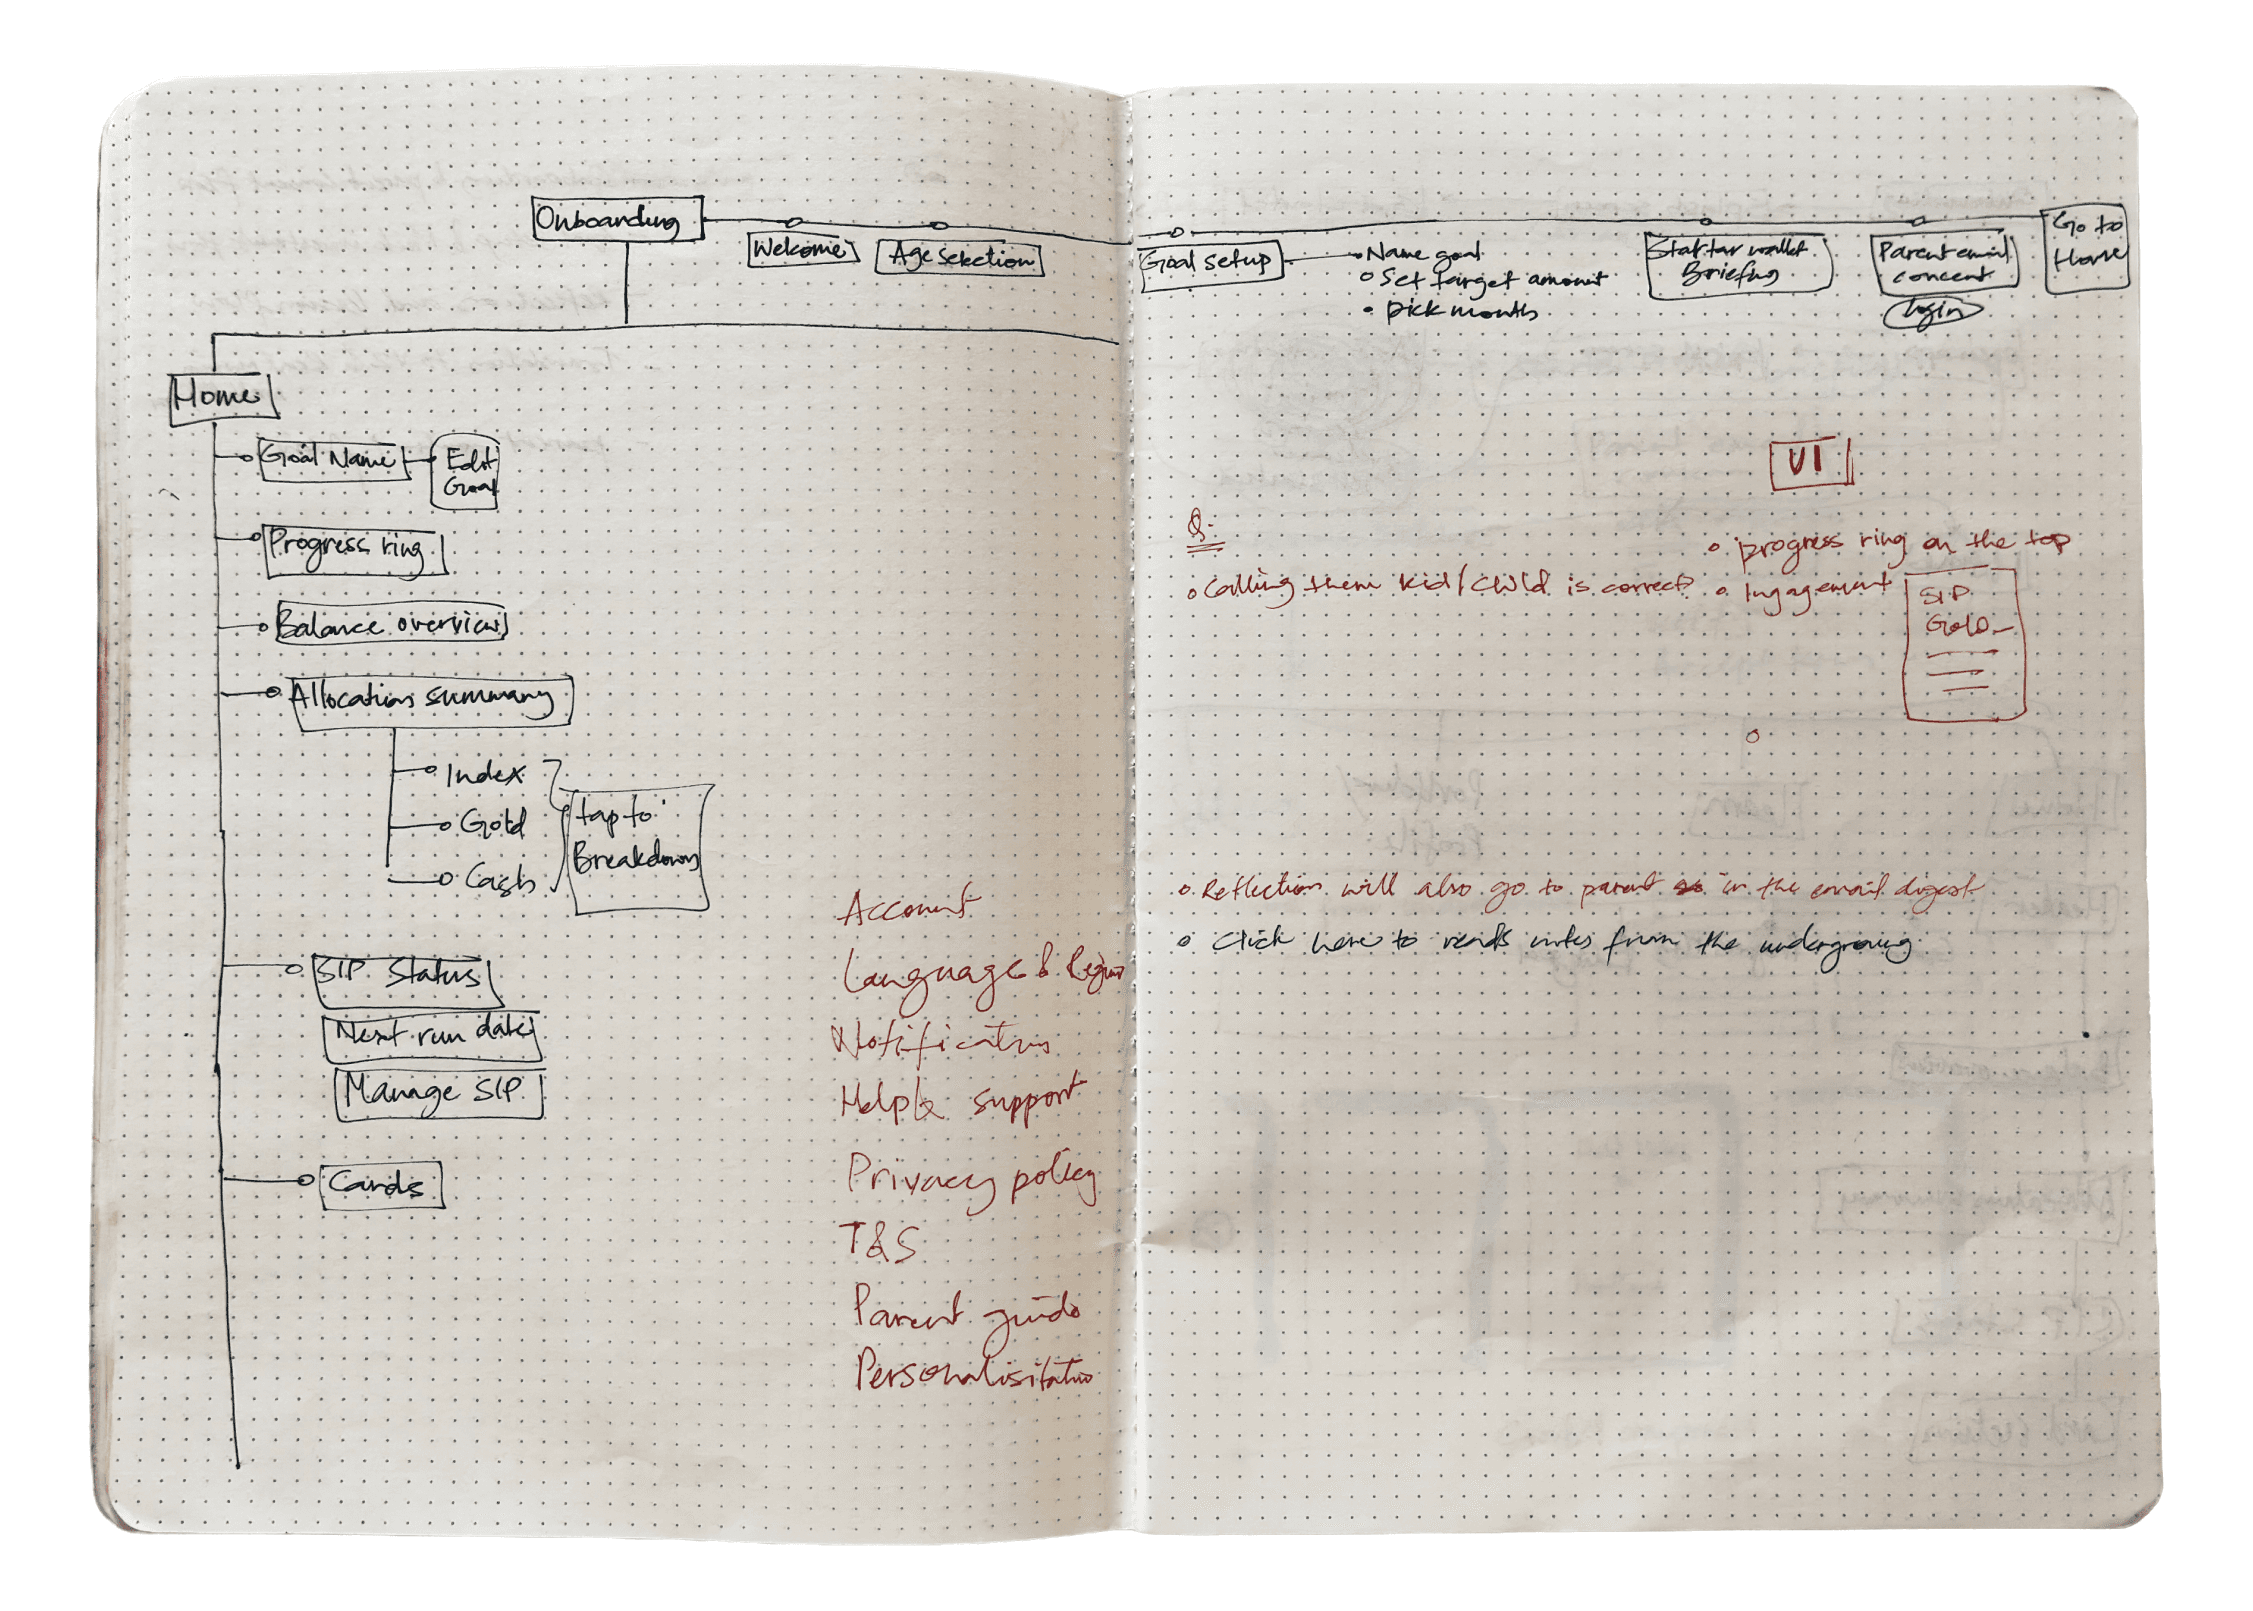 Onboarding
Welcome
Age selection
Goal setup
Name goal
Set target amount
pick month
Startar wallet
Briefing
Parent email
concent
login
Go to
Home
Home
Goal Name
Edit
Goal
Progress ring
Balance overview
Allocation summary
Index
Gold
Cash
tap to
Breakdown
SIP Status
Next run date
Manage SIP
Cards
Account
Language &
Notifications
Help & support
Privacy policy
T&S
Parent guide
UI
Q.
Calling them kid/child is correct
progress ring on the top
Ingagement
SIP
Gold
Reflection will also go to parent in the email digest
Click here to reads notes from the